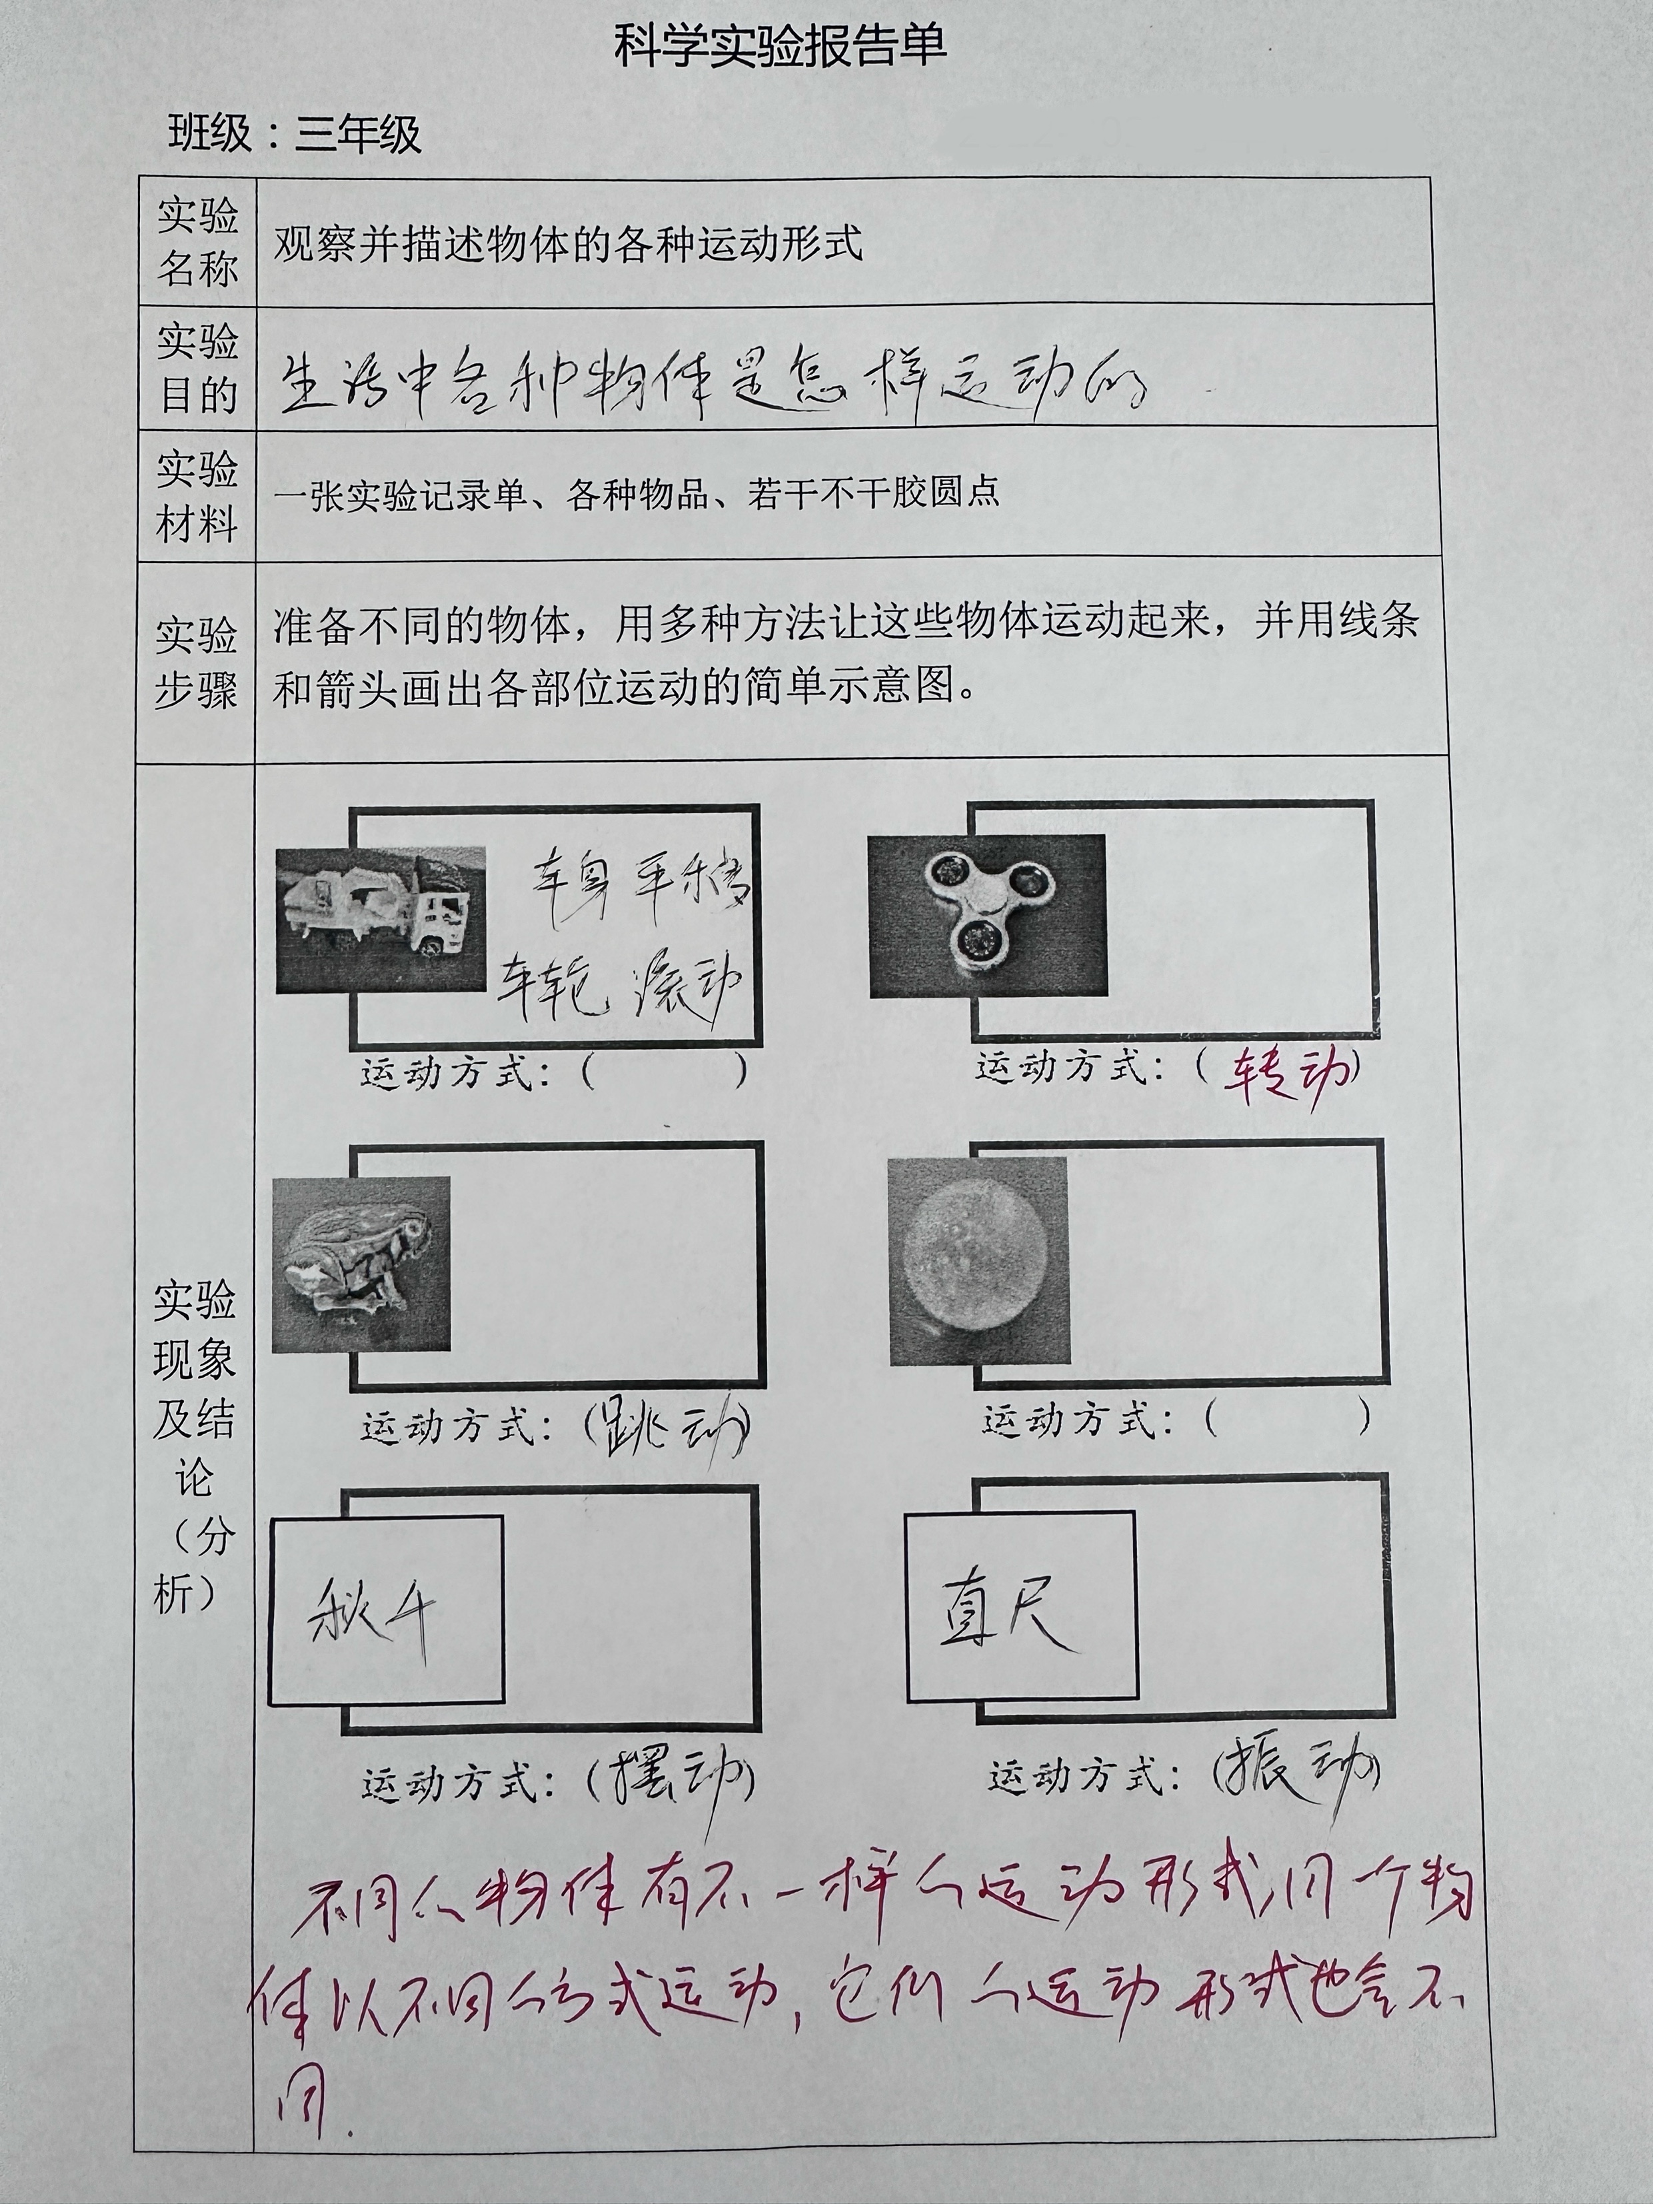 科学实验报告单
班级：三年级
实验
名称
观察并描述物体的各种运动形式
实验
目的
生活中各种物体是怎样运动的
实验
材料
一张实验记录单、各种物品、若干不干胶圆点
实验
步骤
准备不同的物体，用多种方法让这些物体运动起来，并用线条
和箭头画出各部位运动的简单示意图。
实验
现象
及结
论
（分
析）
车身 平移
车轮 滚动
运动方式：（ ）
运动方式：（转动）
运动方式：（跳动）
运动方式：（ ）
秋千
直尺
运动方式：（摆动）
运动方式：（振动）
不同的物体有不一样的运动形式,同一个物
体以不同的方式运动,它们的运动形式也会不
同.